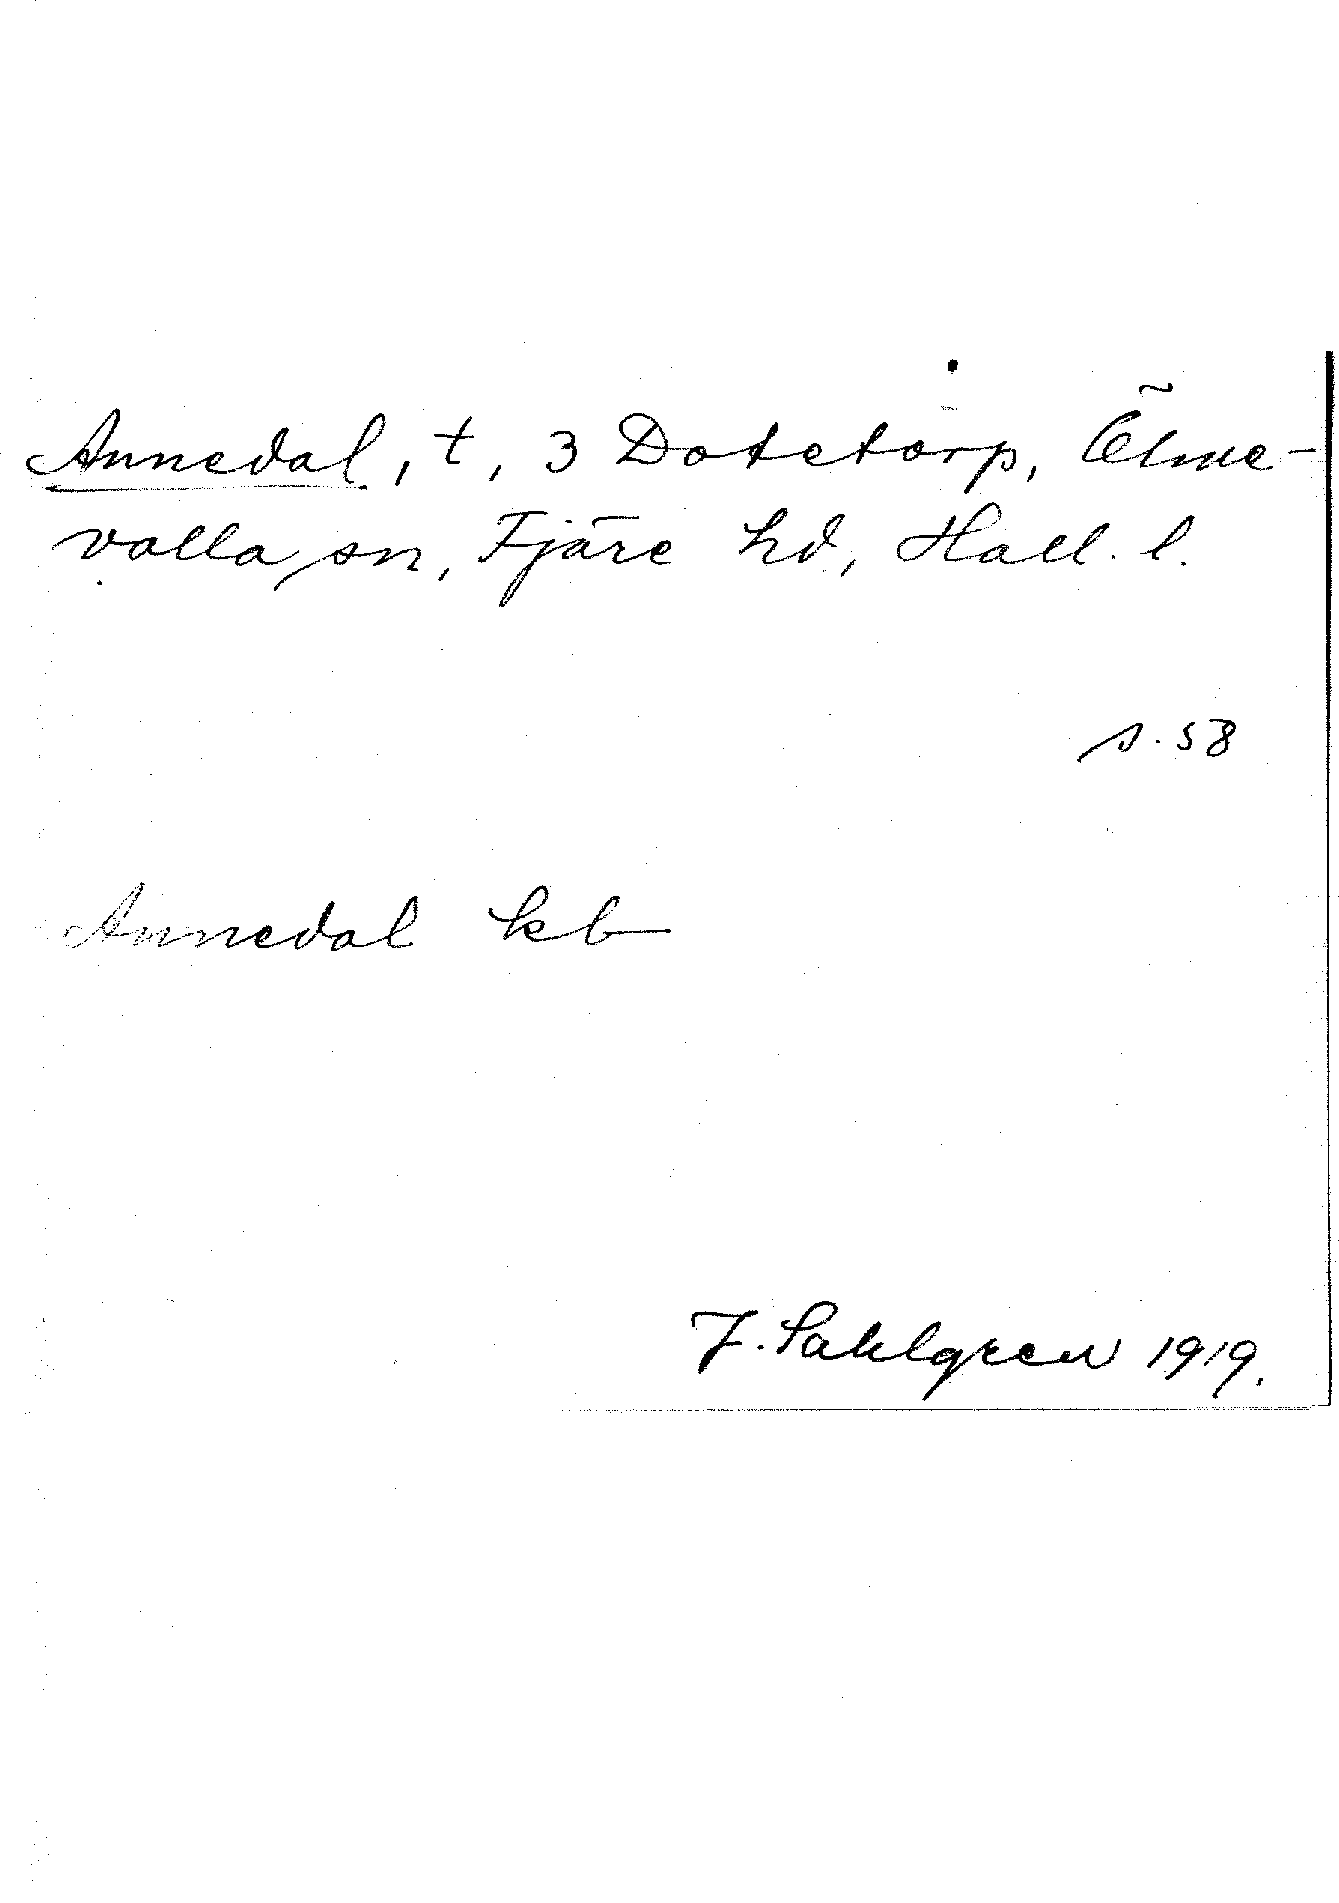 Annedal, t, 3 Dotetorp, Ölme-
valla sn, Fjäre hd, Hall. l.
s. 58
Annedal kb
J. Sahlgren 1919.